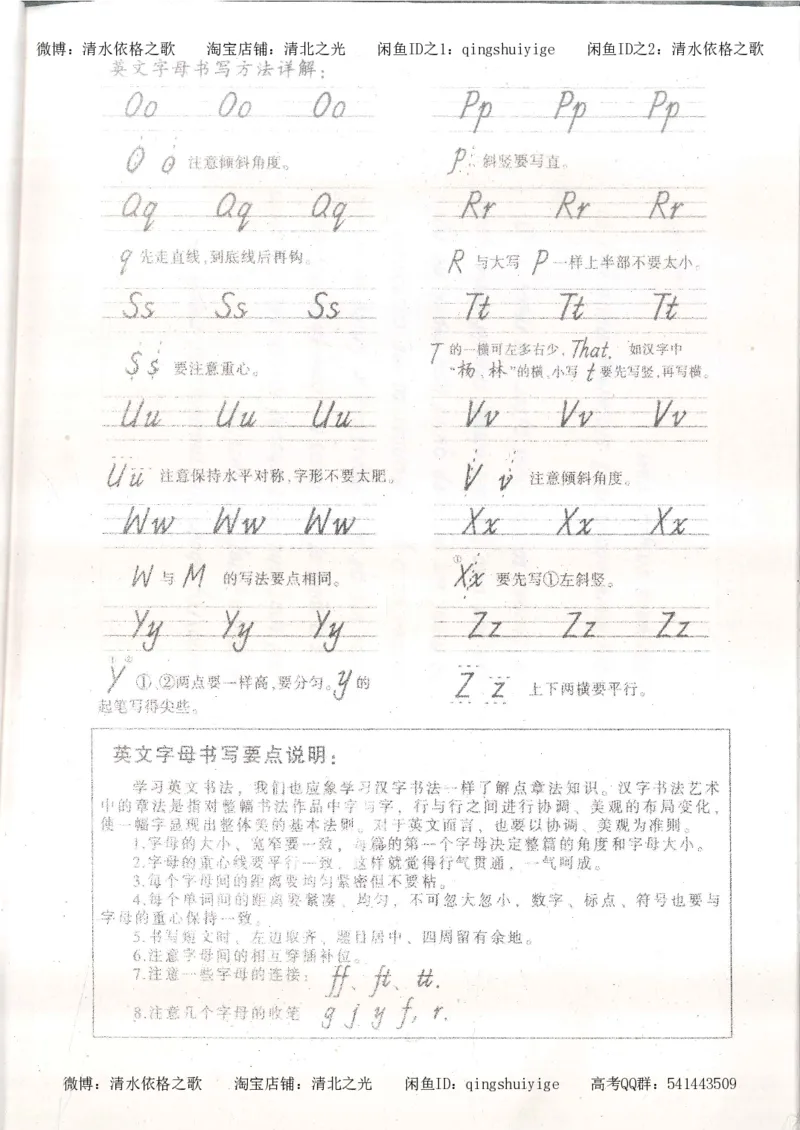 微博：清水依格之歌 淘宝店铺：清北之光 闲鱼ID之1：qingshuiyige 闲鱼ID之2：清水依格之歌
英文字母书写方法详解：
Oo Oo Oo
Pp Pp Pp
O o 注意倾斜角度。
P 斜竖要写直。
Qq Qq Qq
Rr Rr Rr
q 先走直线，到底线后再钩。
R 与大写 P 一样上半部不要太小。
Ss Ss Ss
Tt Tt Tt
S s 要注意重心。
T 的一横可左多右少，That. 如汉字中
“杨、林”的横、小写 t 要先写竖，再写横。
Uu Uu Uu
Vv Vv Vv
Uu 注意保持水平对称，字形不要太肥。
V v 注意倾斜角度。
Ww Ww Ww
Xx Xx Xx
W 与 M 的写法要点相同。
① Xx 要先写①左斜竖。
Yy Yy Yy
Zz Zz Zz
Y ①、②两点要一样高，要分匀。y 的
起笔写得尖些。
Z z 上下两横要平行。
英文字母书写要点说明：
学习英文书法，我们也应象学习汉字书法一样了解点章法知识。汉字书法艺术
中的章法是指对整幅书法作品中字与字，行与行之间进行协调、美观的布局变化，
使一幅字显现出整体美的基本法则。对于英文而言，也要以协调、美观为准则。
1.字母的大小、宽窄要一致，每篇的第一个字母决定整篇的角度和字母大小。
2.字母的重心线要平行一致，这样就觉得行气贯通，一气呵成。
3.每个字母间的距离要均匀紧密但不要粘。
4.每个单词间的距离要紧凑、均匀，不可忽大忽小，数字、标点、符号也要与
字母的重心保持一致。
5.书写短文时、左边取齐、题目居中、四周留有余地。
6.注意字母间的相互穿插补位。
7.注意一些字母的连接：ff、ft、tt.
8.注意几个字母的收笔 g j y f, r.
微博：清水依格之歌 淘宝店铺：清北之光 闲鱼ID：qingshuiyige 高考QQ群：541443509